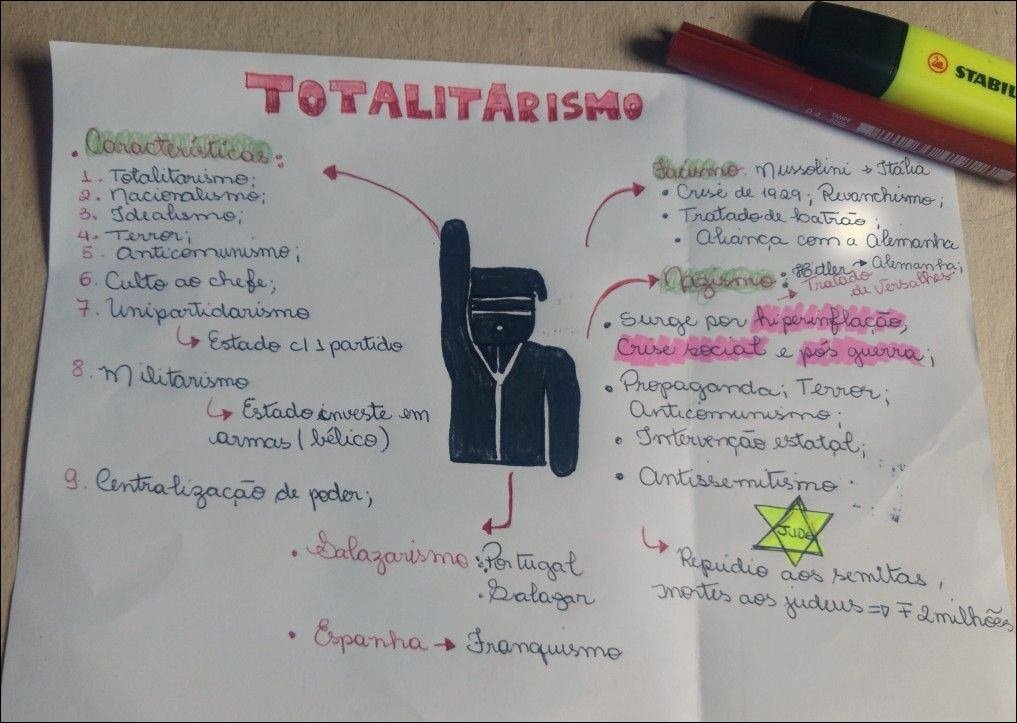 TOTALITARISMO
• Características:
1. Totalitarismo;
2. Nacionalismo;
3. Idealismo;
4. Terror;
5. Anticomunismo;
6. Culto ao chefe;
7. Unipartidarismo
↳ Estado c/ 1 partido
8. Militarismo
↳ Estado investe em
armas (bélico)
9. Centralização de poder;
Facismo: Mussolini → Itália
• Crise de 1929; Revanchismo;
• Tratado de Latrão;
• Aliança com a Alemanha
Nazismo: Hitler → Alemanha;
→ Tratado
de Versalhes
• Surge por hiperinflação,
Crise social e pós guerra;
• Propaganda; Terror;
Anticomunismo;
• Intervenção estatal;
• Antissemitismo
JUDE
↳ Repúdio aos semitas,
mortes aos judeus => ∓ 2 milhões
• Salazarismo: Portugal
• Salazar
• Espanha → Franquismo
STABIL
0.4